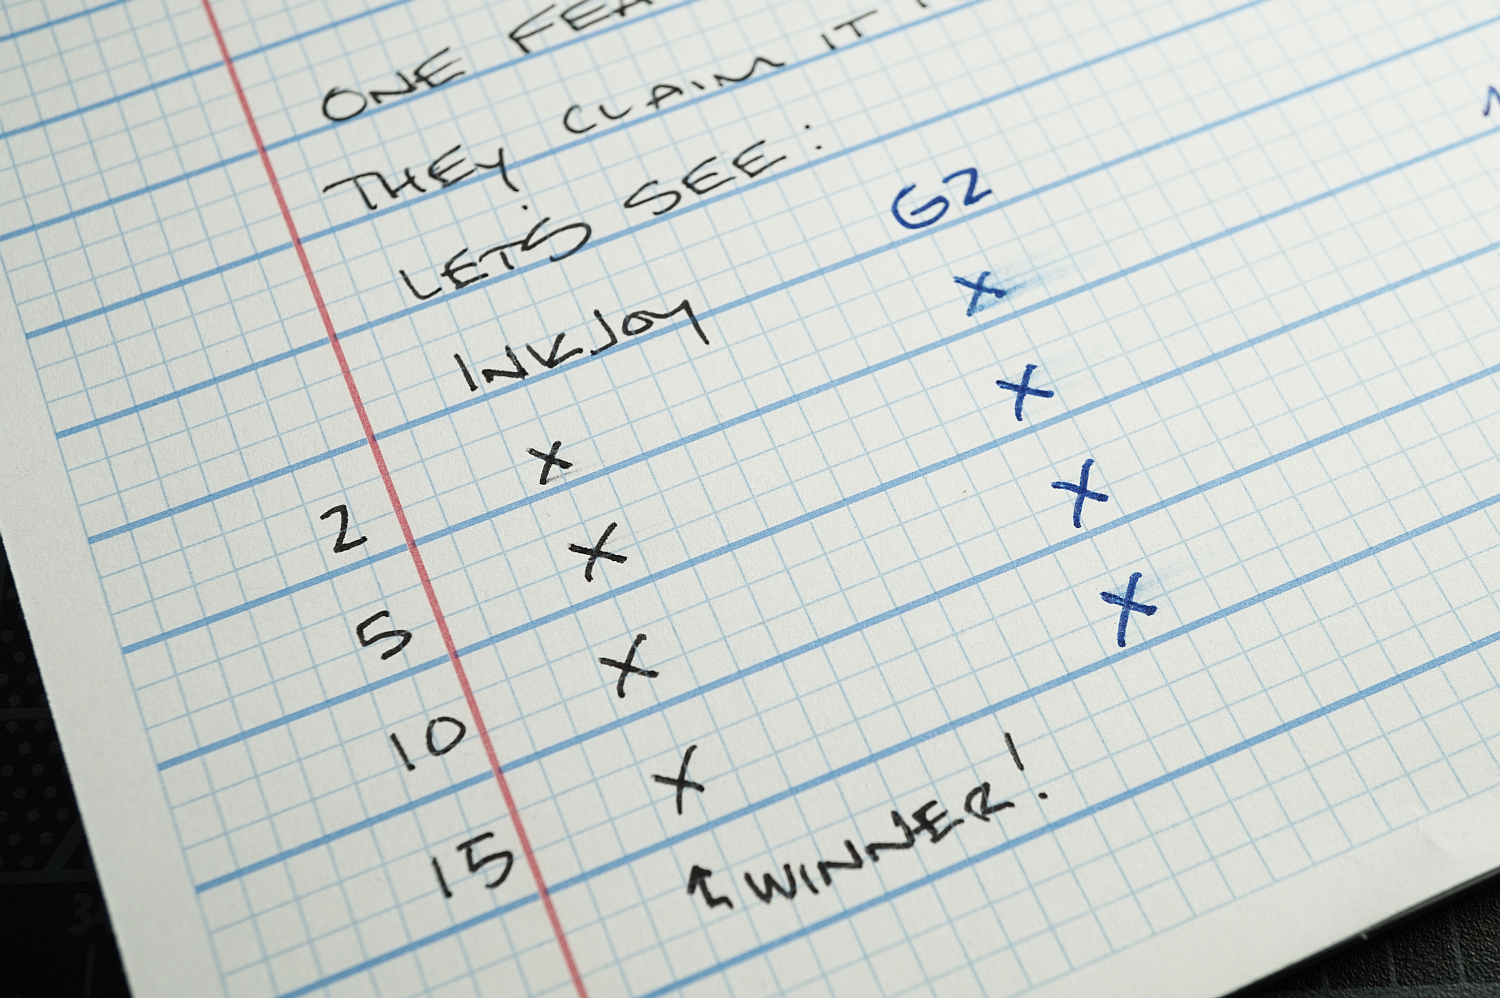 ONE
THEY CLAIM IT
LET'S SEE:
INKJOY G2
X X
2 X X
5 X X
10 X X
15
↑ WINNER!